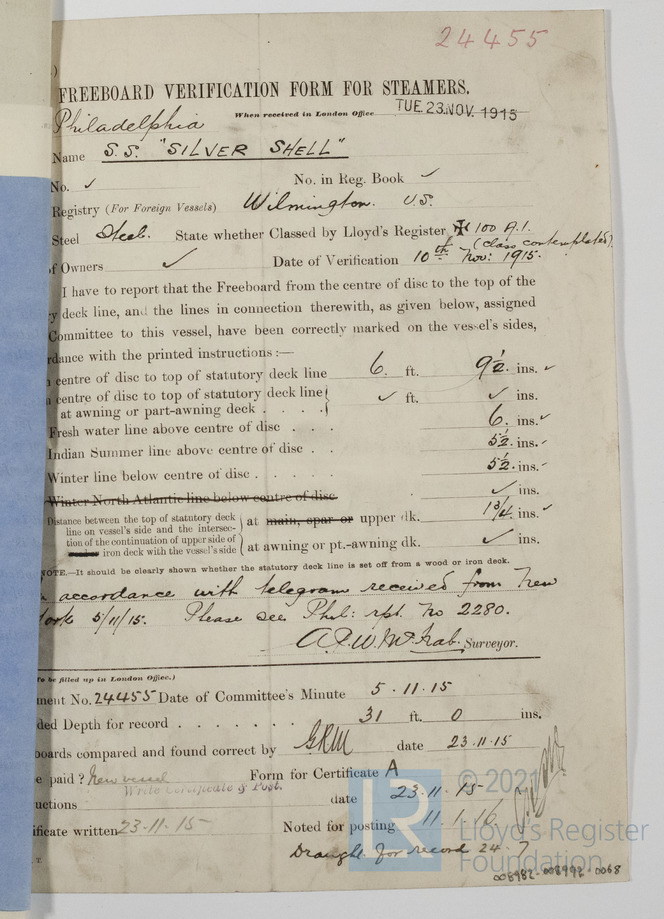 24455
)
FREEBOARD VERIFICATION FORM FOR STEAMERS.
When received in London Office TUE 23.NOV.1915
Philadelphia
Name S.S. "SILVER SHELL"
No. ✓ No. in Reg. Book ✓
Registry (For Foreign Vessels) Wilmington. U.S.
Steel Steel. State whether Classed by Lloyd's Register ✠ 100 A.1.
(class contemplated).
of Owners ✓ Date of Verification 10th Nov: 1915.
I have to report that the Freeboard from the centre of disc to the top of the
y deck line, and the lines in connection therewith, as given below, assigned
Committee to this vessel, have been correctly marked on the vessel's sides,
rdance with the printed instructions :—
centre of disc to top of statutory deck line 6. ft. 9½. ins. ✓
centre of disc to top of statutory deck line ✓ ft. ✓ ins.
at awning or part-awning deck . . . .
Fresh water line above centre of disc . . . 6. ins. ✓
Indian Summer line above centre of disc . . 5½. ins. ✓
Winter line below centre of disc . . . . . 5½. ins. ✓
Winter North Atlantic line below centre of disc . ✓ ins.
Distance between the top of statutory deck
line on vessel's side and the intersec- at main, spar or upper dk. 1¾. ins. ✓
tion of the continuation of upper side of
iron deck with the vessel's side at awning or pt.-awning dk. ✓ ins.
NOTE.—It should be clearly shown whether the statutory deck line is set off from a wood or iron deck.
accordance with telegram received from New
York 5/11/15. Please see Phil: rpt. No 2280.
A.P.W. McNab. Surveyor.
To be filled up in London Office.)
ment No. 24455 Date of Committee's Minute 5.11.15
ded Depth for record . . . . . . . 31 ft. 0 ins.
boards compared and found correct by GRM date 23.11.15
e paid? New vessel Form for Certificate A
Write Certificate & Post.
uctions date 23.11.15
ificate written 23-11-15 Noted for posting 11.1.16.
Draught for record 24.7
© 2021
LR
Lloyd's Register
Foundation
008982-008992-0068